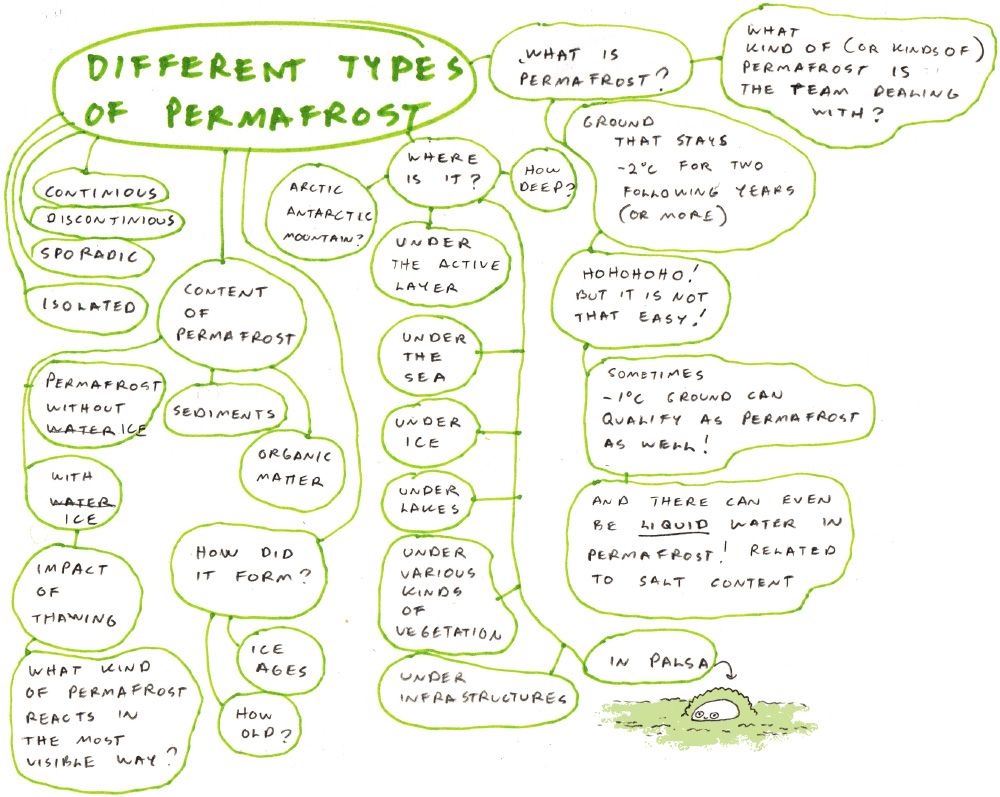 DIFFERENT TYPES
OF PERMAFROST
WHAT IS
PERMAFROST?
WHAT
KIND OF (OR KINDS OF)
PERMAFROST IS
THE TEAM DEALING
WITH?
GROUND
THAT STAYS
-2°C FOR TWO
FOLLOWING YEARS
(OR MORE)
HOHOHOHO!
BUT IT IS NOT
THAT EASY!
SOMETIMES
-1°C GROUND CAN
QUALIFY AS PERMAFROST
AS WELL!
AND THERE CAN EVEN
BE LIQUID WATER IN
PERMAFROST! RELATED
TO SALT CONTENT
WHERE
IS IT?
HOW
DEEP?
ARCTIC
ANTARCTIC
MOUNTAIN?
UNDER
THE ACTIVE
LAYER
UNDER
THE
SEA
UNDER
ICE
UNDER
LAKES
UNDER
VARIOUS
KINDS
OF
VEGETATION
UNDER
INFRASTRUCTURES
IN PALSA
CONTINIOUS
DISCONTINIOUS
SPORADIC
ISOLATED
CONTENT
OF
PERMAFROST
PERMAFROST
WITHOUT
WATER ICE
SEDIMENTS
ORGANIC
MATTER
WITH
WATER
ICE
IMPACT
OF
THAWING
WHAT KIND
OF PERMAFROST
REACTS IN
THE MOST
VISIBLE WAY?
HOW DID
IT FORM?
ICE
AGES
HOW
OLD?